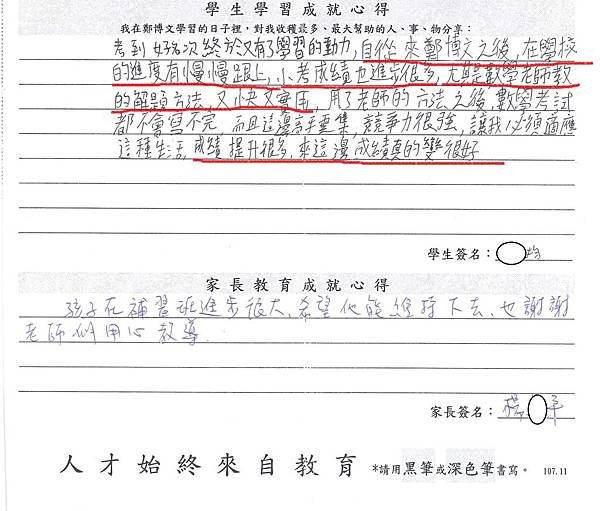 學生學習成就心得
我在鄭博文學習的日子裡，對我收穫最多、最大幫助的人、事、物分享：
考到好幾次終於又有了學習的動力，自從來鄭博文之後，在學校
的進度有慢慢跟上，小考成績也進步很多，尤其是數學老師教
的解題方法，又快又實用，用了老師的方法之後，數學考試
都不會寫不完，而且這邊高手雲集，競爭力很強，讓我必須適應
這種生活，成績提升很多，來這邊成績真的變很好
學生簽名：均
家長教育成就心得
孩子在補習班進步很大、希望他能維持下去、也謝謝
老師們用心教導.
家長簽名：楊 華
人才始終來自教育 *請用黑筆或深色筆書寫。 107.11